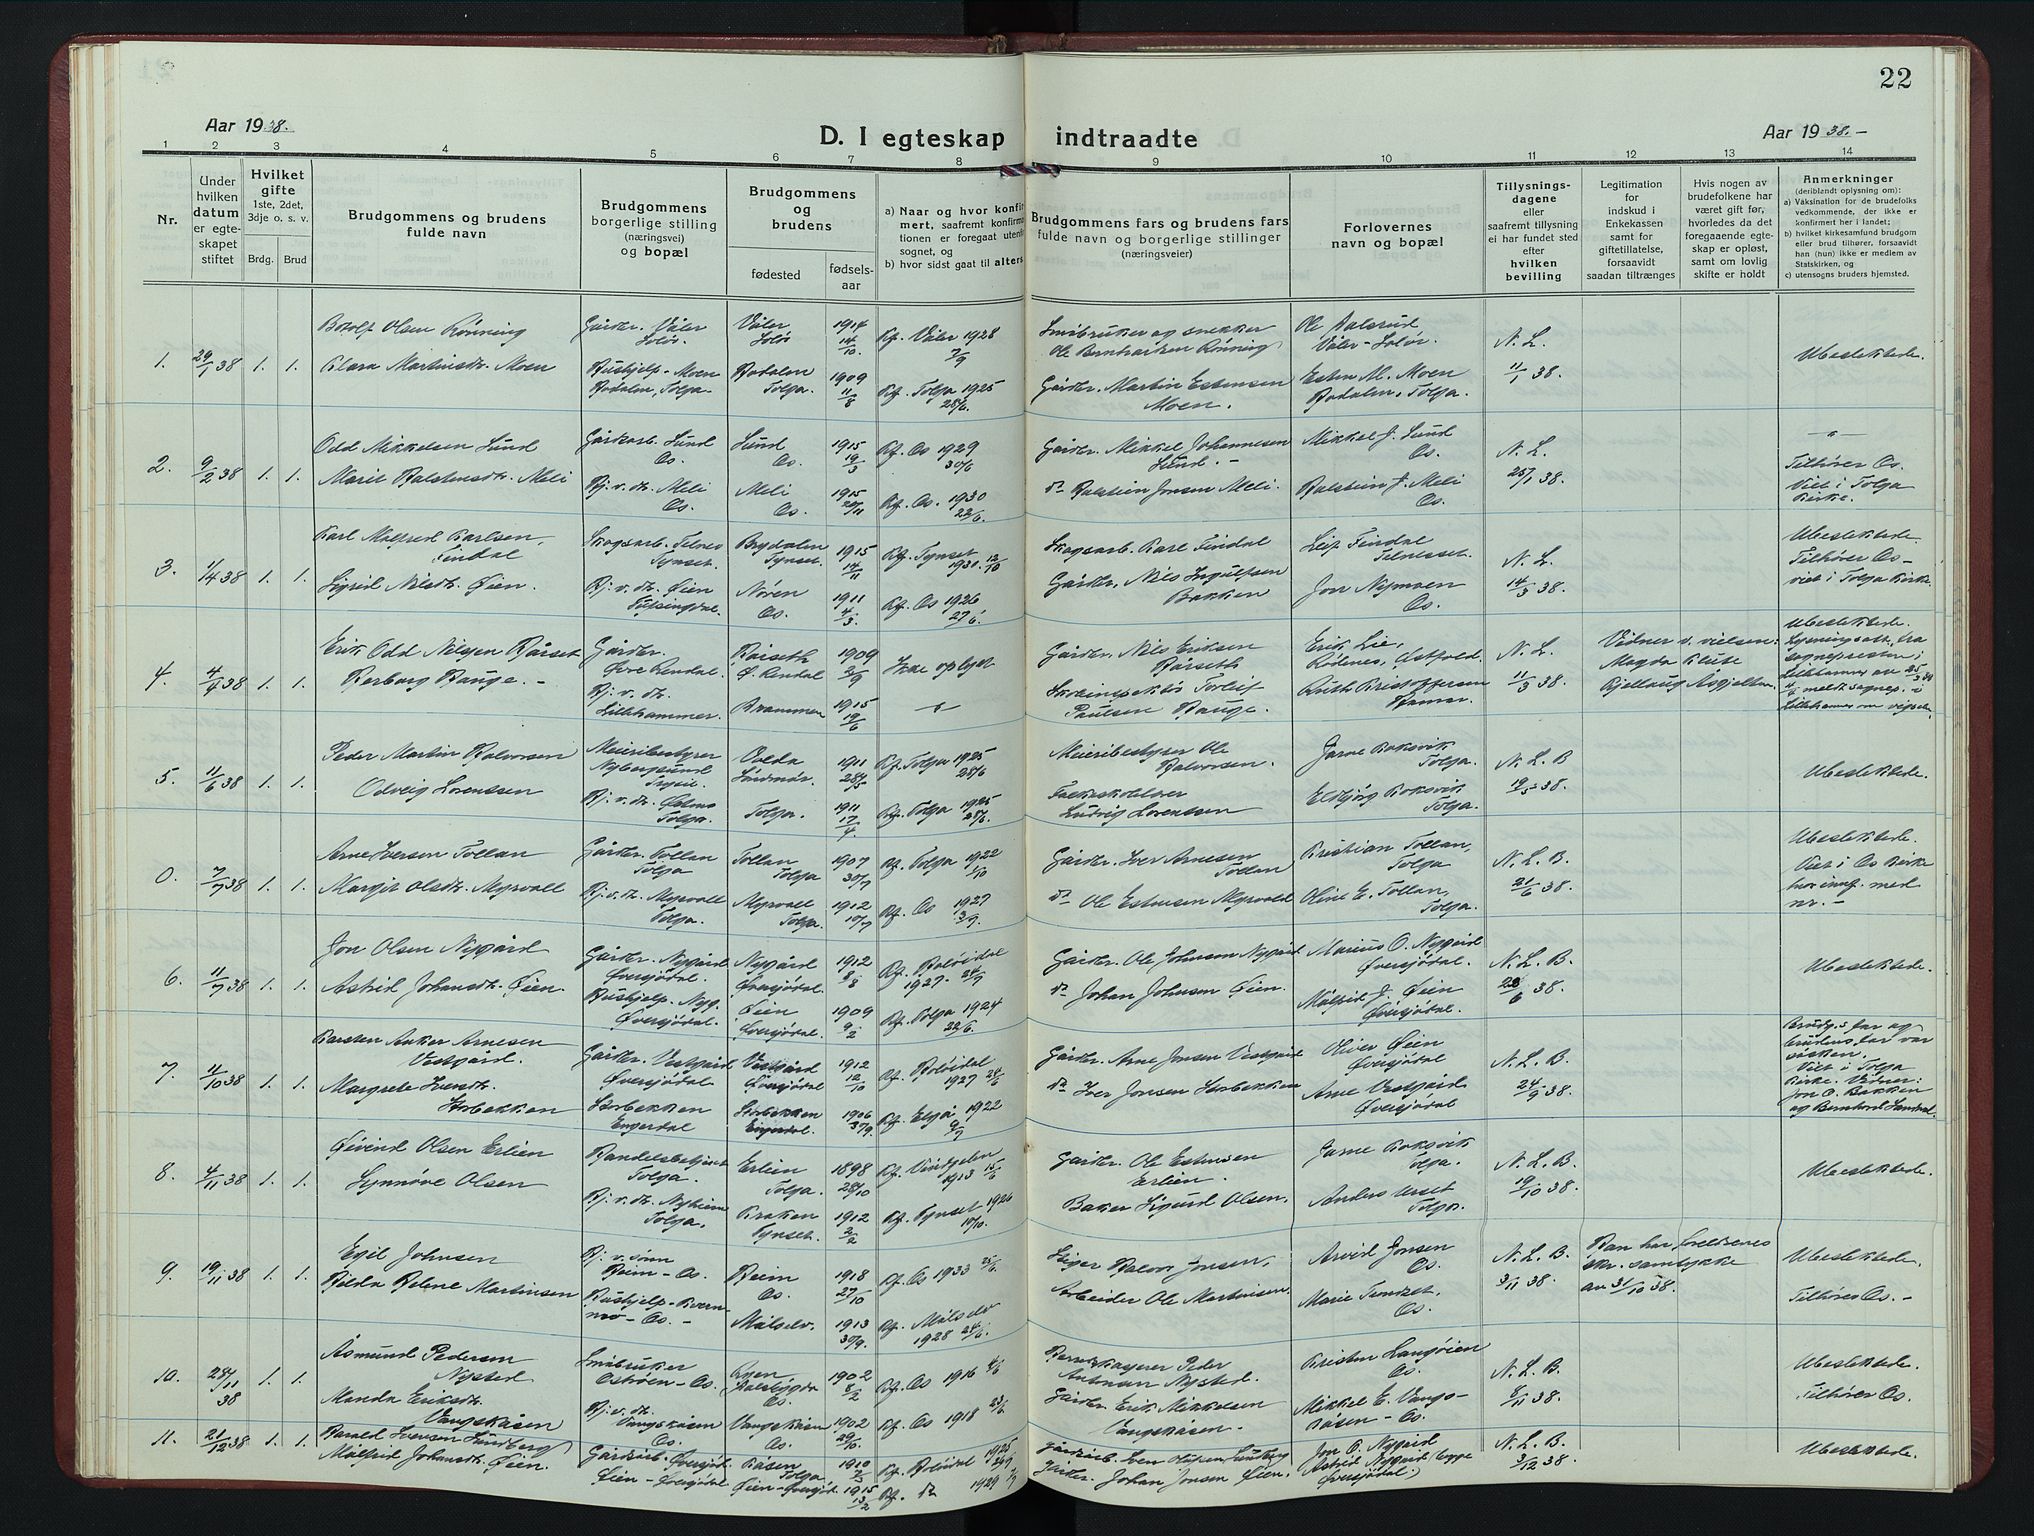 22
Aar 1938.
D. I egteskap indtraadte
Aar 1938.-
1 2 3 4 5 6 7 8 9 10 11 12 13 14
Nr.
Under hvilken datum er egteskapet stiftet
Hvilket gifte 1ste, 2det, 3dje o. s. v.
Brdg. Brud
Brudgommens og brudens fulde navn
Brudgommens borgerlige stilling (næringsvei) og bopæl
Brudgommens og brudens
fødested
fødsels-aar
a) Naar og hvor konfirmert, saafremt konfirmationen er foregaat utenfor sognet, og
b) hvor sidst gaat til alters
Brudgommens fars og brudens fars fulde navn og borgerlige stillinger (næringsveier)
Forlovernes navn og bopæl
Tillysnings-dagene eller saafremt tillysning ei har fundet sted efter hvilken bevilling
Legitimation for indskud i Enkekassen samt for giftetillatelse, forsaavidt saadan tiltrænges
Hvis nogen av brudefolkene har været gift før, hvorledes da det foregaaende egteskap er opløst, samt om lovlig skifte er holdt
Anmerkninger
(deriblandt oplysning om):
a) Vaksination for de brudefolks vedkommende, der ikke er konfirmert her i landet;
b) hvilket kirkesamfund brudgom eller brud tilhører, forsaavidt han (hun) ikke er medlem av Statskirken, og
c) utensogns bruders hjemsted.
1. 29/1 38 1. 1. Botolf Olsen Rønning Gårdbr. Våler Solør. Våler, Solør 1914 14/10. Kf. Våler 1928 7/9 Småbruker og snekker Ole Bernhardsen Rønning Ole Aalsrud, Våler-Solør. N. L. 11/1 38. Ubeslektede.
Klara Martinsdt. Moen Hushjelp-Moen Hodalen, Tolga. Hodalen Tolga. 1909 11/8 Kf. Tolga 1925 28/6. Gårdbr. Martin Estensen Moen. Esten M. Moen Hodalen, Tolga.
2. 9/2 38 1. 1. Odd Mikkelsen Sund Gårdsarb. Sund Os. Sund Os. 1915 19/3 Kf. Os 1929 30/6 Gårdbr. Mikkel Johannesen Sund.- Mikkel J. Sund Os. N. L. 25/1 38. -"-
Marit Halstensdt. Meli Hj. v. dt. Meli Os. Meli Os. 1915 Kf. Os. 1930 22/6. do Halstein Jonsen Meli. Halstein J. Meli Os. Tilhører Os. Viet i Tolga Kirke.
3. 1/4 38 1. 1. Karl Malfred Karlsen, Findal Skogsarb. Telnes Tynset. Brydalen Tynset. 1915 14/11 Kf. Tynset 1930. 12/10 Skogsarb. Karl Findal Leif Findal Telneset. N. L. 14/3 38. Ubeslektede. Tilhører Os- viet i Tolga Kirke.
Sigrid Nilsdt. Øien. Hj. v. dt. Øien Tufsingdal. Nøren Os. 1911 4/3. Kf. Os 1926 27/6. Gårdbr. Nils Ingulfsen Bakken Jon Nymoen Os.
4. 4/4 38 1. 1. Erik Odd Nilsen Bårset Gårdbr. Øvre Rendal Bårseth Ø. Rendal 1909 Ikke oplyst Gårdbr. Nils Eriksen Bårseth Erik Lie, Rødenes, Østfold. N. L. 11/3 38. Vidner v. vielsen: Magda Klute Kjellaug Asgjelten. Ubeslektede. Lysningsatt. fra sognepresten i Lillehammer
Herborg Hauge.- Hj. v. dt. Lillehammer. Drammen 1915 19/6 -"- Torleif Paulsen Hauge. Ruth Kristoffersen Hamar.
5. 11/6 38 1. 1. Peder Martin Halvorsen Meieribestyrer Nybergsund Trysil. Volda Sunnmør. 1911 28/5 Kf. Tolga 1925 28/6 Meieribestyrer Ole Halvorsen. Jarne Koksvik Tolga. N. L. B 19/5 38. Ubeslektede.
Odveig Lorentsen Hj. v. dt. Tolga. Tolga. 1911 17/4. Kf. Tolga 1925 28/6. Folkeskolelærer Ludvig Lorentsen Eldbjørg Koksvik Tolga.
0. 7/7 38 1. 1. Arne Iversen Tollan Gårdbr. Tollan Tolga Tollan Tolga 1907 30/7 Kf. Tolga 1922 1/10 Gårdbr. Iver Arnesen Tollan Kristian Tollan, Tolga N. L. B. 21/6 38. Ubeslektede. Viet i Os Kirke hvor innf. med nr.-
Margit Olsdt. Myrvoll Hj. v. dt. Myrvoll Tolga. Myrvoll Tolga. 1912 10/7 Kf. Os 1927 do Ole Estensen Myrvold Oline E. Tollan, Tolga.
6. 11/7 38 1. 1. Jon Olsen Nygård Gårdbr. Nygård Øversjødal. Nygård Øversjødal. 1912 8/8 Kf. Holøidal 1927. 24/7 Gårdbr. Ole Johnsen Nygård Marius O. Nygård Øversjødal. N. L. B. 22/6 38. Ubeslektede.
Astrid Johansdt. Øien. Hushjelp. Nyg. Øversjødal. Øien Øversjødal. 1909 9/2 Kf. Tolga 1924 22/6. do Johan Johnsen Øien. Målfrid J. Øien Øversjødal.
7. 4/10 38 1. 1. Karsten Anker Arnesen Vestgård. Gårdbr. Vestgård Øversjødal Vestgård Øversjødal 1912 12/10 Kf. Holøidal 1927 24/6 Gårdbr. Arne Jonsen Vestgård Oliver Øien Øversjødal N. L. B. 24/9 38. Brudg.s far og brudens far var søsken. Viet i Tolga Kirke. Vidner: Jon O. Bakken og Bernhard Sandnes.
Margrete Iversdt. Storbekken Storbekken Engerdal Storbekken Engerdal. 1906 Kf. Elgå 1922 9/7 do Iver Jonsen Storbekken Arne Vestgård Øversjødal
8. 4/11 38 1. 1. Øivind Olsen Erlien Handelsbetjent Tolga. Erlien Tolga. 1898 28/10 Kf. Vingelen 1913 15/6 Gårdbr. Ole Estensen Erlien. Jarne Koksvik Tolga. N. L. B. 19/10 38. Ubeslektede.
Synnøve Olsen Hj. v. dt. Nyheim Tolga. Kraken Tynset. 1912 2/2 Kf. Tynset 1926 10/10. Baker Sigurd Olsen. Anders Urset Tolga.
9. 19/11 38 1. 1. Egil Johnsen Hj. v. sønn Heim-Os. Heim Os. 1918 27/10 Kf. Os 1933 25/6. Halvor Jonsen, Arvid Jonsen Os. N. L. B. 3/11 38. Han har foreldrenes skr. samtykke av 31/10 38. Ubeslektede.
Hilda Helene Martinsen Hushjelp-Kvernmo-Os.- Målselv. 1913 30/9. Kf. Målselv 1928 24/6. Arbeider Ole Martinsen. Marie Tundset, Os. Tilhører Os.-
10. 28/11 38 1. 1. Åsmund Pedersen Nysted Småbruker Østrøen-Os. Ryen Dalsbygda Os. 1902 8/2 Kf. Os 1916 4/6 Peder Antonsen Nysted. Kristen Langøien Os. N. L. B. 8/11 38. Ubeslektede. Tilhører Os.
Manda Eriksdt. Vangskåsen Hj. v. dt. Vangskåsen Os. Vangskåsen Os. 1902 29/10. Kf. Os 1918 23/6. Gårdbr. Erik Mikkelsen Vangskåsen. Mikkel E. Vangskåsen-Os.
11. 21/12 38 1. 1. Harald Iversen Sundberg Gårdsarb. Øversjød. Kåsen Tolga 1910 Kf. Holøidal 1925 Gårdsarb. Iver Olufsen Sundberg Jon O. Nygård N. L. B. 3/12 38. Ubeslektede.
Målfrid Johansdt. Øien. Øien-Øversjødal Øien-Øversjød. 1915 13/2 Kf. do 1929 Gårdbr. Johan Jonsen Øien. Astrid Nygård Øversjødal.